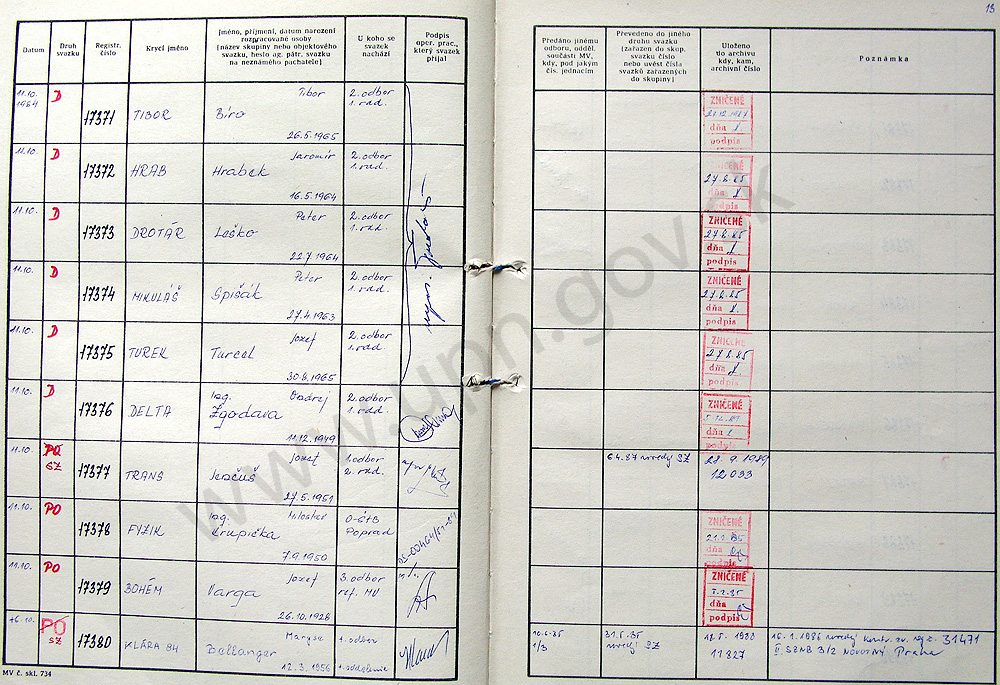 13
Datum
Druh svazku
Registr. číslo
Krycí jméno
Jméno, příjmení, datum narození
rozpracované osoby
[název skupiny nebo objektového
svazku, heslo ag. pátr. svazku
na neznámého pachatele]
U koho se
svazek
nachází
Podpis
oper. prac.,
který svazek
přijal
Předáno jinému
odboru, odděl.
součásti MV,
kdy, pod jakým
čís. jednacím
Převedeno do jiného
druhu svazku
[zařazen do skup.
svazku číslo
nebo uvést čísla
svazků zařazených
do skupiny]
Uloženo
do archivu
kdy, kam,
archivní číslo
Poznámka
11.10. 1984 D 17371 TIBOR Tibor Bíro 26.5.1965 2. odbor 1. rad.
ZNIČENÉ dňa podpis
11.10. D 17372 HRAB Jaromír Hrabek 16.5.1964 2. odbor 1. rad.
ZNIČENÉ 27.6.85 dňa podpis
11.10. D 17373 DROTÁR Peter Leško 22.7.1964 2. odbor 1. rad.
ZNIČENÉ 27.6.85 dňa podpis
11.10. D 17374 MIKULÁŠ Peter Spišák 27.4.1963 2. odbor 1. rad.
ZNIČENÉ 27.6.85 dňa podpis
11.10. D 17375 TUREK Jozef Turcel 30.8.1965 2. odbor 1. rad.
ZNIČENÉ 27.6.85 dňa podpis
11.10. D 17376 DELTA Ing. Ondrej Zgodava 11.12.1949 2. odbor 1. rad.
ZNIČENÉ dňa podpis
11.10. PO SZ 17377 TRANS Jozef 27.5.1951 1. odbor 2. rad.
6.4.87 SZ 28.9.1989 12 033
11.10. PO 17378 FYZIK Ing. Krupička 7.9.1950 O-ŠtB Poprad
ZNIČENÉ dňa podpis
11.10. PO 17379 BOHÉM Jozef Varga 26.10.1928 3. odbor ref. MV
ZNIČENÉ dňa podpis
16.10. PO SZ 17380 KLÁRA 84 Maryse Bellanger 12.3.1956 1. odbor 1. oddelenie
10.6.85 1/3 31.5.85 SZ 11827 16.1.1986 31471
II. 3/2 NOVOTNÝ Praha
MV č. skl. 734
www.upn.gov.sk